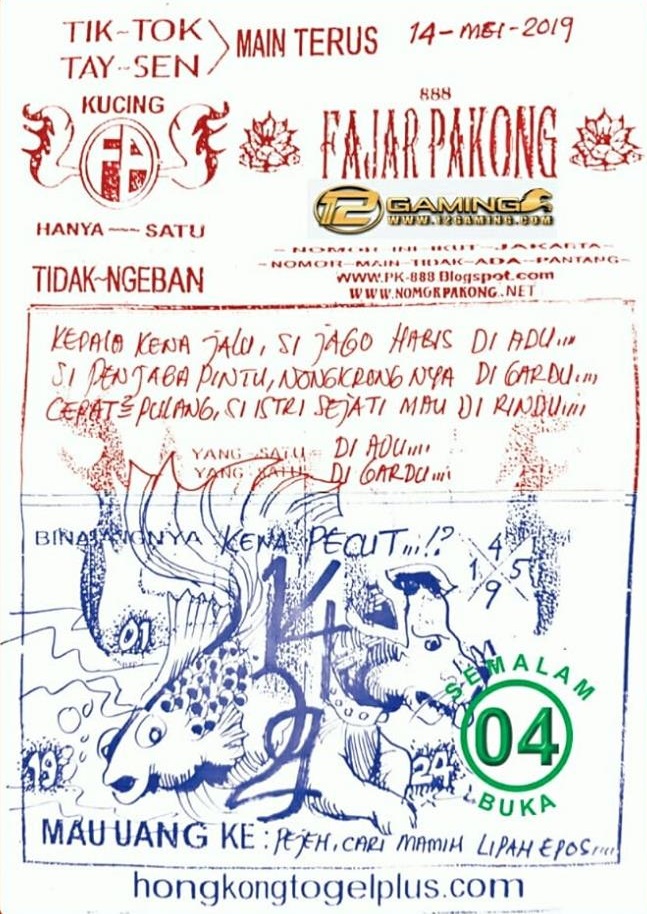 TIK-TOK
TAY-SEN
MAIN TERUS
14-MEI-2019
KUCING
FP
HANYA ~~~ SATU
TIDAK-NGEBAN
888
FAJAR PAKONG
12 GAMING
WWW.12GAMING.COM
- NOMOR INI IKUT - JAKARTA -
- NOMOR - MAIN TIDAK - ADA - PANTANG -
WWW.PK-888.Blogspot.com
WWW.NOMORPAKONG.NET
KEPALA KENA JALU, SI JAGO HABIS DI ADU....
SI PENJABA PINTU, NONGKRONG NYA DI GARDU....
CEPAT² PULANG, SI ISTRI SEJATI MAU DI RINDU....
YANG SATU DI ADU....
YANG SATU DI GARDU....
BINATANGNYA KENA PECUT....!?
4
1 5
9
14
29
01
19
24
SEMALAM
04
BUKA
MAU UANG KE : PEJEH, CARI MAMIH LIPAH EPOS....
hongkongtogelplus.com